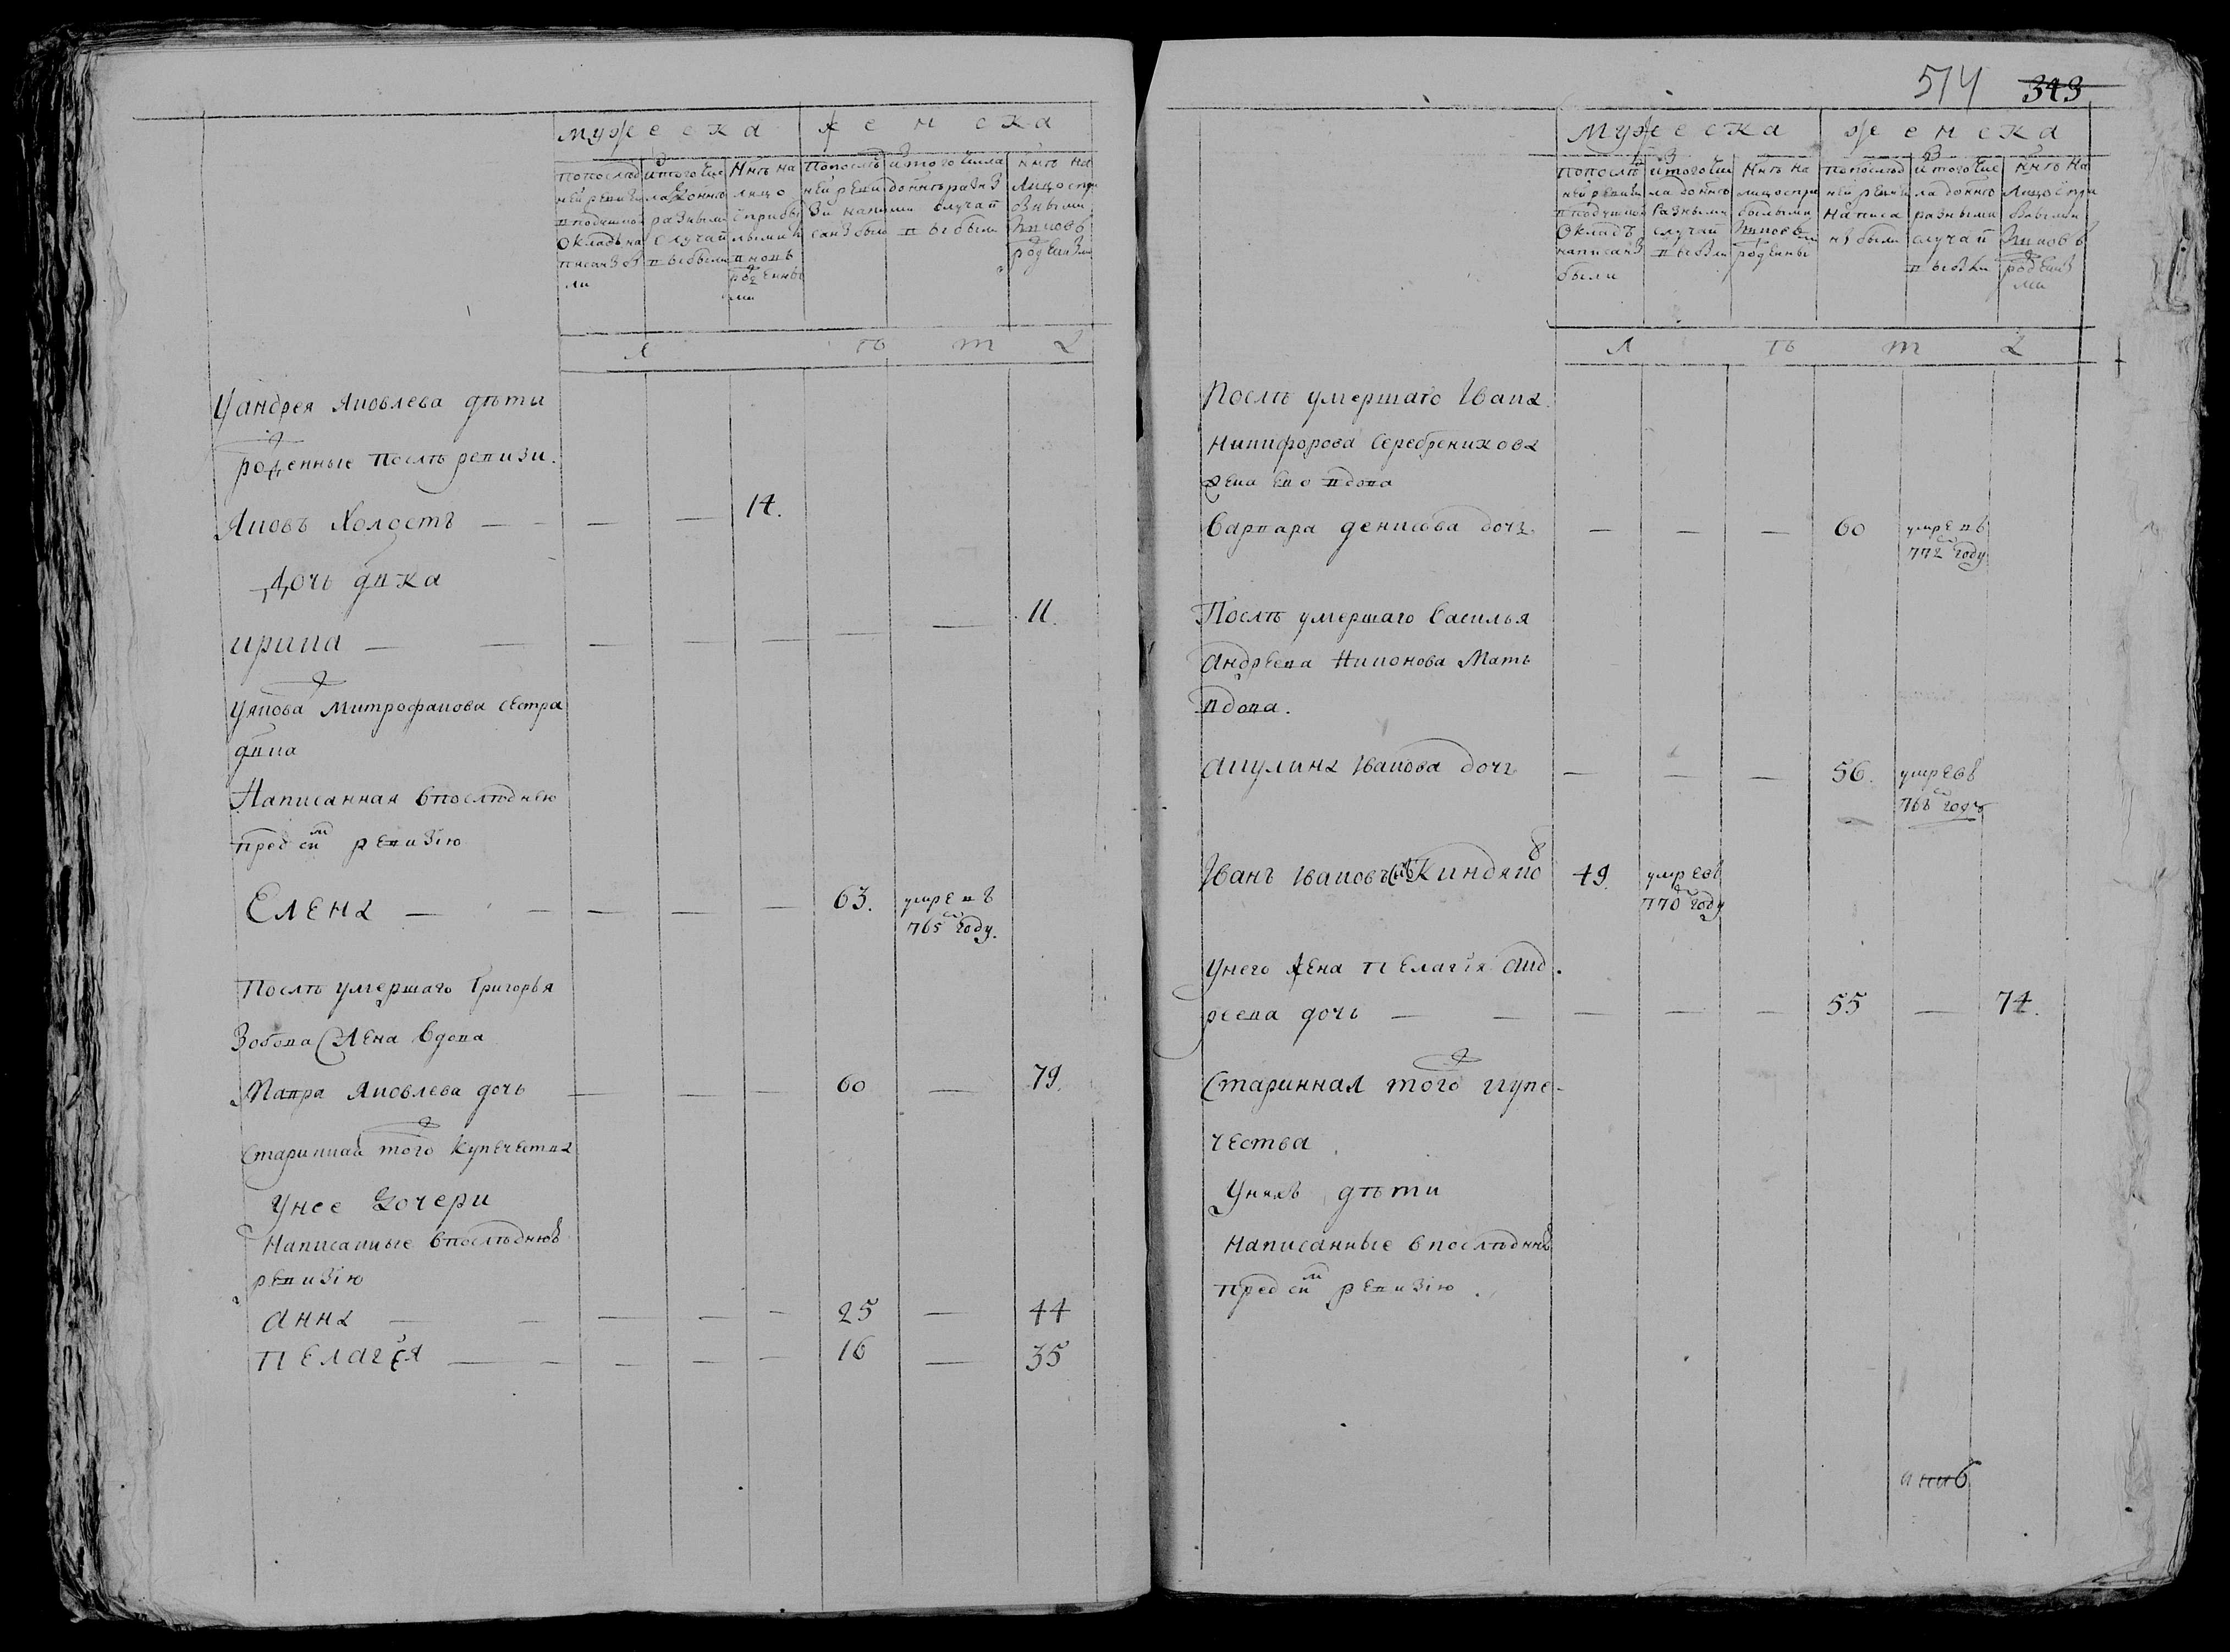 мужеска женска
попослед
ней ревизи
вподушном
окладе на
писаны бы
ли
изтого чис
ла доныне
разными
случаи
выбыли
Ныне на
лицо
с прибы
лыми и
вновь
рожденны
ми
Попослед
ней ревизи
написаны были
изтого числа
доныне разны
ми случаи
выбыли
ныне на
лицо с при
былыми
вновь
рожденными
л ѣ т а
У андрея Яковлева дѣти
рожденные послѣ ревизи
Яковъ Холостъ — — — — 14.
Дочь дѣвка
ирина — — — — — — — 11.
У якова Митрофанова сестра
дѣвка
Написанная впослѣднею
пред сим ревизию
Елена — — — — — 63. умре въ
765 году.
Послѣ умершаго Григорья
Зобова жена вдова
Мавра Яковлева дочь — — — 60 — 79.
Старинная того купечества
У нее дочери
Написанные впослѣднюю
ревизию
анна — — — — — 25 — 44
пелагея — — — — — 16 — 35
514 343
мужеска женска
попослед
ней ревизи
вподушном
окладе
написаны
были
изтого чис
ла доныне
разными
случаи
выбыли
Ныне на
лицо с при
былыми
вновь
рожденны
ми
попослед
ней ревизи
написа
ны были
изтого чис
ла доныне
разными
случаи
выбыли
ныне на
лицо с при
былыми
вновь
рожденны
ми
л ѣ т а
Послѣ умершаго Ивана
Никифорова Серебреникова
жена ево вдова
Варвара денисова дочь — — — 60 умре въ
772 году
Послѣ умершаго Василья
андреева Никонова Мать
вдова.
акулина Иванова дочь — — — 56. умре въ
768 году
Иванъ Ивановъ снъ Киндяков 49. умре въ
770 году
У него жена пелагiя анд
реева дочь — — — — — 55 — 74.
Старинная того купе-
чества
У них дѣти
Написанные впослѣднею
пред сим ревизию.